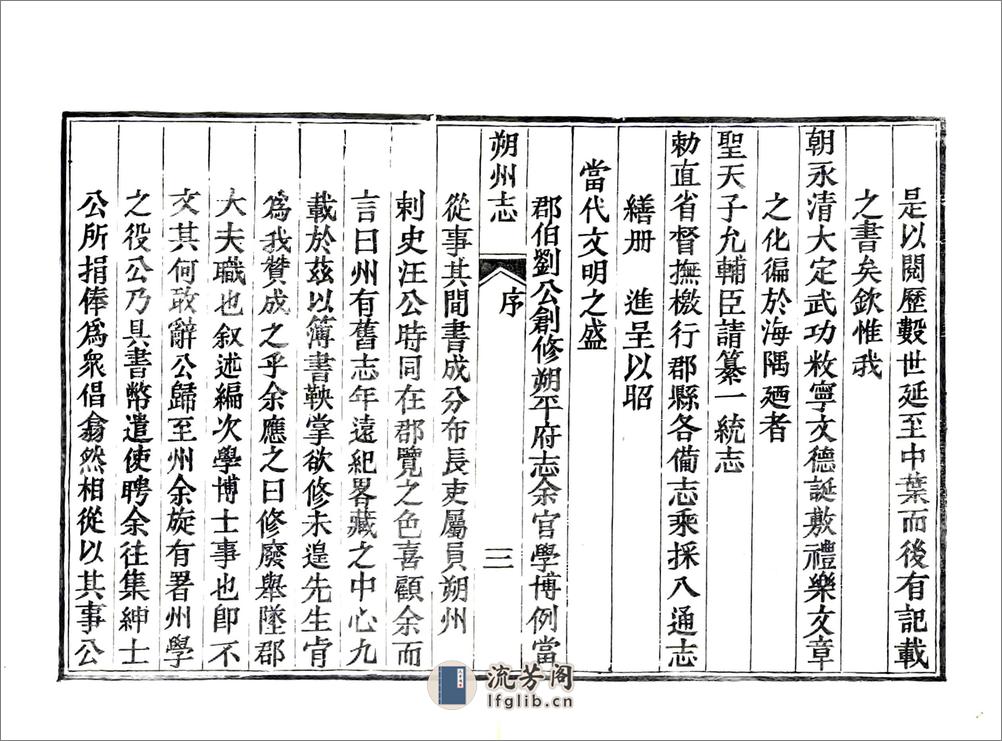 是以閱歷數世延至中葉而後有記載
之書矣欽惟我
朝永清大定武功敉寧文德誕敷禮樂文章
之化徧於海隅廼者
聖天子允輔臣請纂一統志
勅直省督撫檄行郡縣各備志乘採入通志
繕册　進呈以昭
當代文明之盛
郡伯劉公創修朔平府志余官學博例當
朔州志　序　三
從事其間書成分布長吏屬員朔州
刺史汪公時同在郡覽之色喜顧余而
言曰州有舊志年遠紀畧藏之中心九
載於茲以簿書鞅掌欲修未遑先生肯
爲我贊成之乎余應之曰修廢舉墜郡
大夫職也叙述編次學博士事也卽不
文其何敢辭公歸至州余旋有署州學
之役公乃具書幣遣使聘余往集紳士
公所捐俸爲衆倡翕然相從以其事公
流芳阁
lfglib.cn